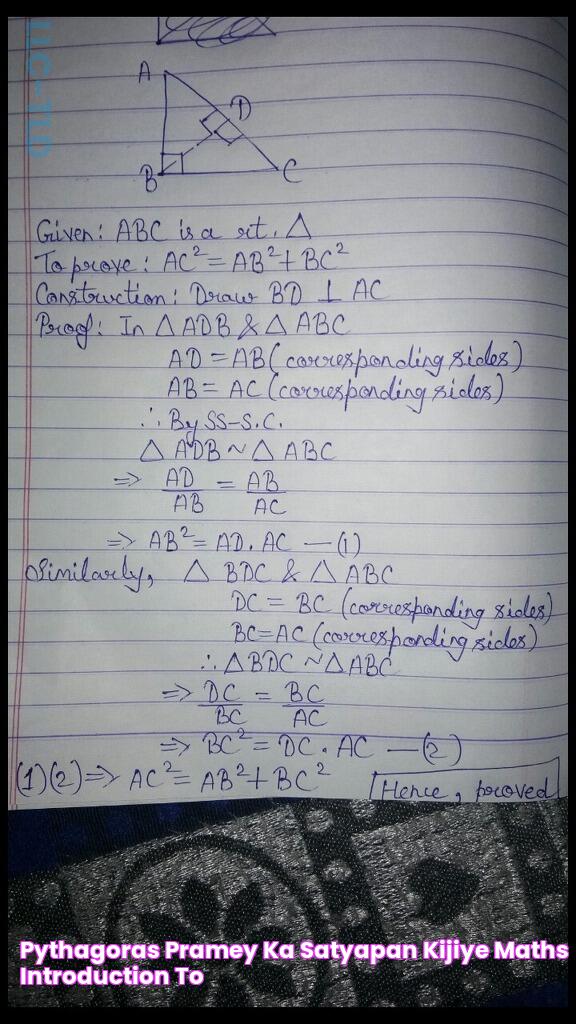 A
D
B
C
Given: ABC is a rt. △
To prove: AC² = AB² + BC²
Construction: Draw BD ⊥ AC
Proof: In △ ADB & △ ABC
AD = AB (corresponding sides)
AB = AC (corresponding sides)
∴ By SS-S.C.
△ ADB ~ △ ABC
⇒ AD/AB = AB/AC
⇒ AB² = AD. AC —(1)
Similarly, △ BDC & △ ABC
DC = BC (corresponding sides)
BC = AC (corresponding sides)
∴ △BDC ~ △ABC
⇒ DC/BC = BC/AC
⇒ BC² = DC . AC —(2)
(1)(2) ⇒ AC² = AB² + BC²
Hence, proved
Pythagoras Pramey Ka Satyapan Kijiye Maths
Introduction To